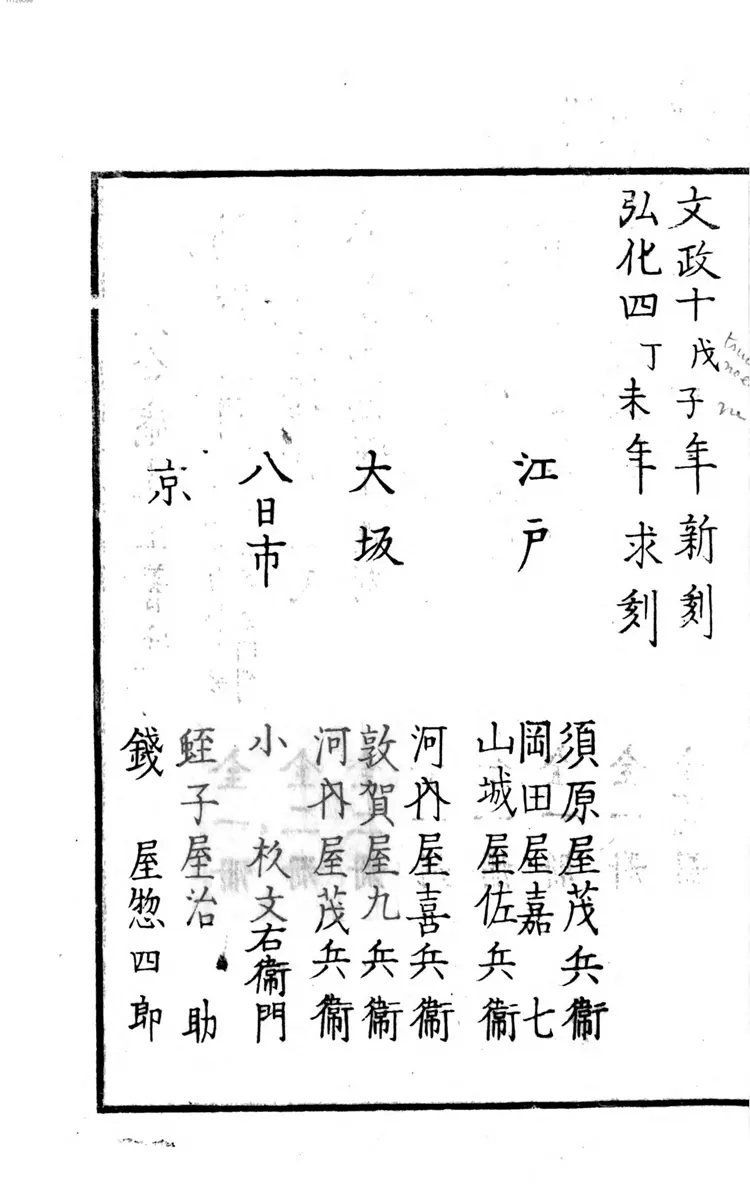 文政十戊子年新刻
弘化四丁未年求刻
江戸
須原屋茂兵衞
岡田屋嘉七
山城屋佐兵衞
大坂
河内屋喜兵衞
敦賀屋九兵衞
河内屋茂兵衞
八日市
小杦文右衞門
京
蛭子屋治助
錢屋惣四郎